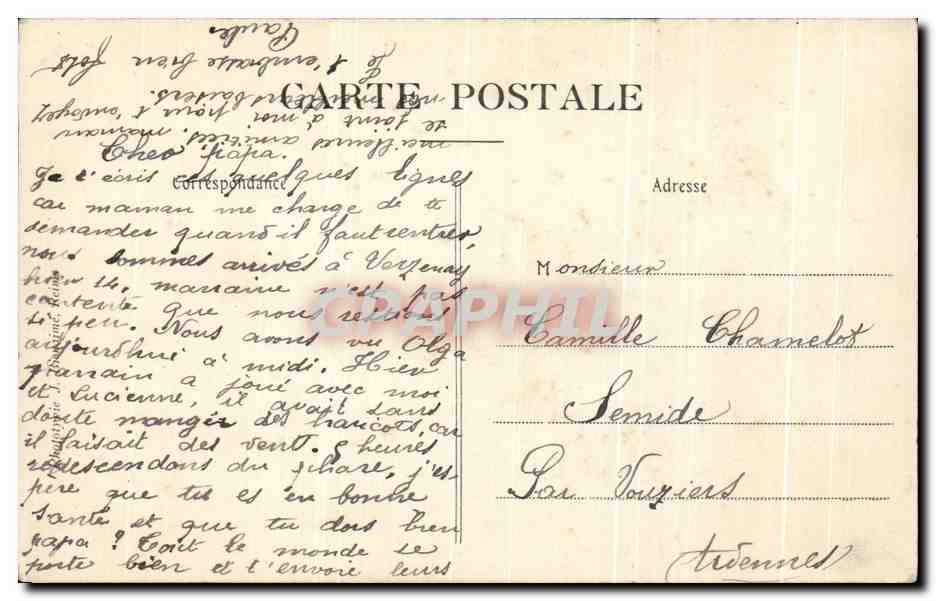 CARTE POSTALE
Correspondance
Adresse
Cher papa.
Je t'écris ces quelques lignes
car maman me charge de te
demander quand il faut rentrer,
nous sommes arrivés à Verzenay
hier 14, marraine n'est pas
contente que nous restions
si peu. Nous avons vu Olga
aujourd'hui à midi. Hier
parrain a joué avec moi
et Lucienne, il avait sans
doute mangé des haricots, car
il faisait des vents. 5 heures
redescendons du phare, j'es-
père que tu es en bonne
santé et que tu dors bien
papa ? Tout le monde se
porte bien et t'envoie leurs
meilleures amitiés. maman
se joint à moi pour t'envoyer
nos baisers.
Je t'embrasse bien fort
Paule
Monsieur
Camille Chamelot
Semide
Par Vouziers
Ardennes
Phototypie J. Reims
CPAPHIL